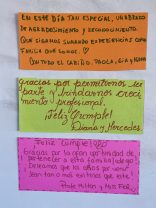 EN ESTE DÍA TAN ESPECIAL, UN ABRAZO
DE AGRADECIMIENTO Y RECONOCIMIENTO
QUE SIGAMOS SUMANDO EXPERIENCIAS COMO
FAMILIA QUE SOMOS.
CON TODO EL CARIÑO, PAOLA, GIA y
Gracias por permitirnos ser
parte y brindarnos creci
miento profesional.
¡Feliz Cumple!
Diana y Mercedes
¡Feliz Cumpleaños!
Gracias por la gran oportunidad de
pertenecer a esta familia
Deseamos que los años por venir
sean tanto más exitosos que este!